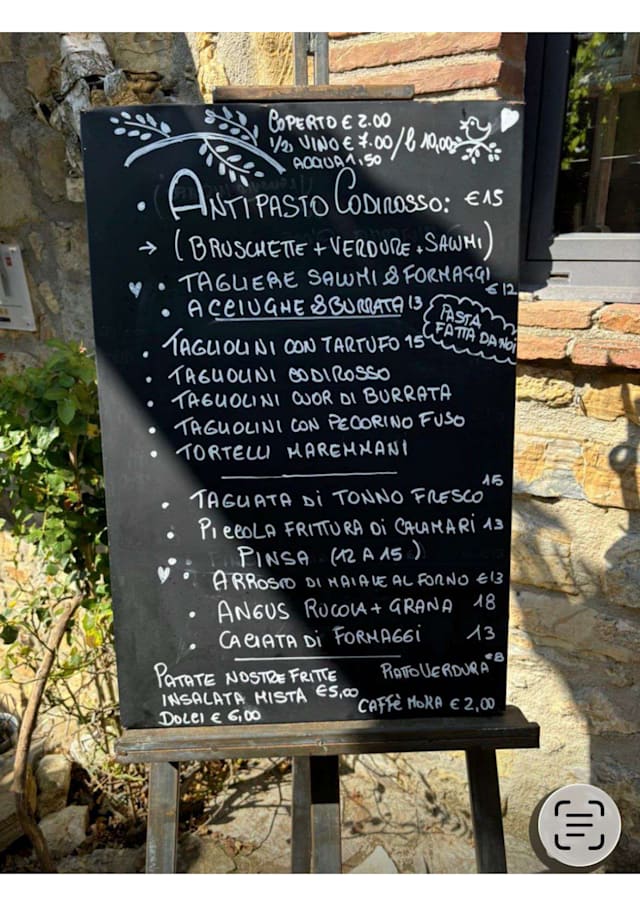 COPERTO € 2.00
1/2 VINO € 7.00 / l 10,00
ACQUA 1,50
• ANTIPASTO CODIROSSO: €15
→ (BRUSCHETTE + VERDURE + SALUMI)
• TAGLIERE SALUMI & FORMAGGI €12
• ACCIUGHE & BURRATA 13
PASTA FATTA DA NOI
• TAGLIOLINI CON TARTUFO 15
• TAGLIOLINI CODIROSSO
• TAGLIOLINI CUOR DI BURRATA
• TAGLIOLINI CON PECORINO FUSO
• TORTELLI MAREMMANI
• TAGLIATA DI TONNO FRESCO 15
• PICCOLA FRITTURA DI CALAMARI 13
• PINSA (12 A 15)
• ARROSTO DI MAIALE AL FORNO €13
• ANGUS RUCOLA + GRANA 18
• CACIATA DI FORMAGGI 13
PATATE NOSTRE FRITTE
PIATTO VERDURA €8
INSALATA MISTA €5,00
CAFFÈ MOKA € 2,00
DOLCI € 6,00